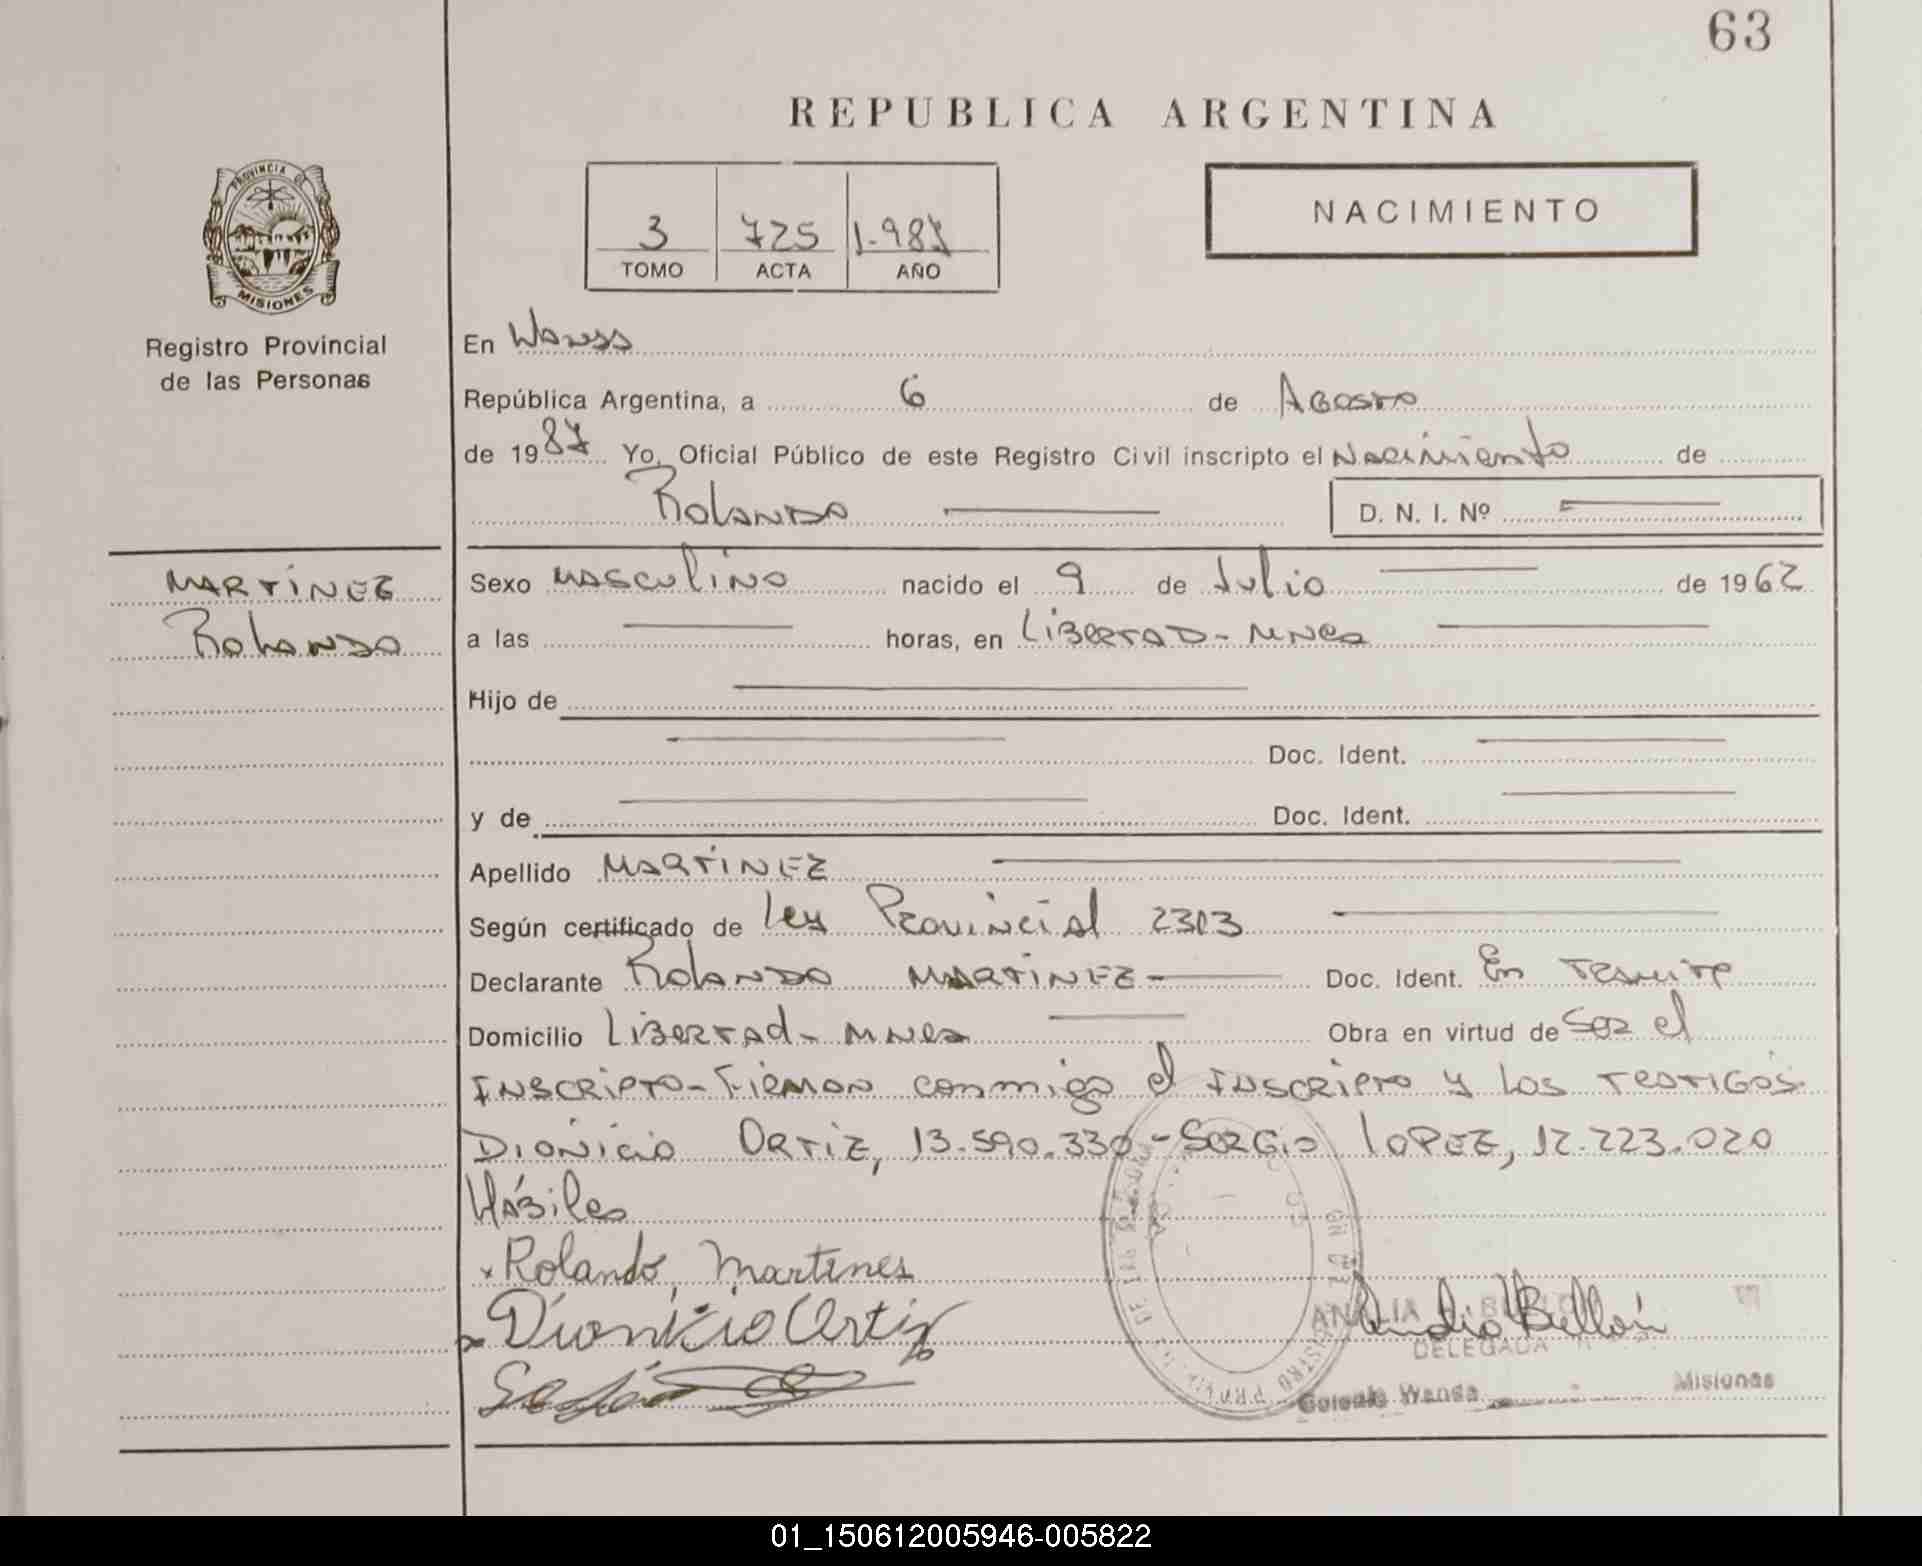 63
REPUBLICA ARGENTINA
PROVINCIA DE
MISIONES
3 725 1.987
TOMO ACTA AÑO
NACIMIENTO
Registro Provincial
de las Personas
En Wanda
República Argentina, a 6 de Agosto
de 1987 Yo, Oficial Público de este Registro Civil inscripto el Nacimiento de
Rolando D. N. I. Nº
MARTÍNEZ
Rolando
Sexo masculino nacido el 9 de Julio de 1962
a las horas, en Libertad - Mnes
Hijo de
Doc. Ident.
y de Doc. Ident.
Apellido MARTÍNEZ
Según certificado de Ley Provincial 2303
Declarante Rolando MARTÍNEZ - Doc. Ident. En Tramite
Domicilio Libertad - Mnes Obra en virtud de Ser el
Inscripto - Firman conmigo el Inscripto y los testigos
Dionicio Ortiz, 13.590.330 - Sergio LOPEZ, 12.223.020
Hábiles
x Rolando, Martines
x Dionicio Ortiz
DELEGADA
Colonia Wanda Misiones
01_150612005946-005822